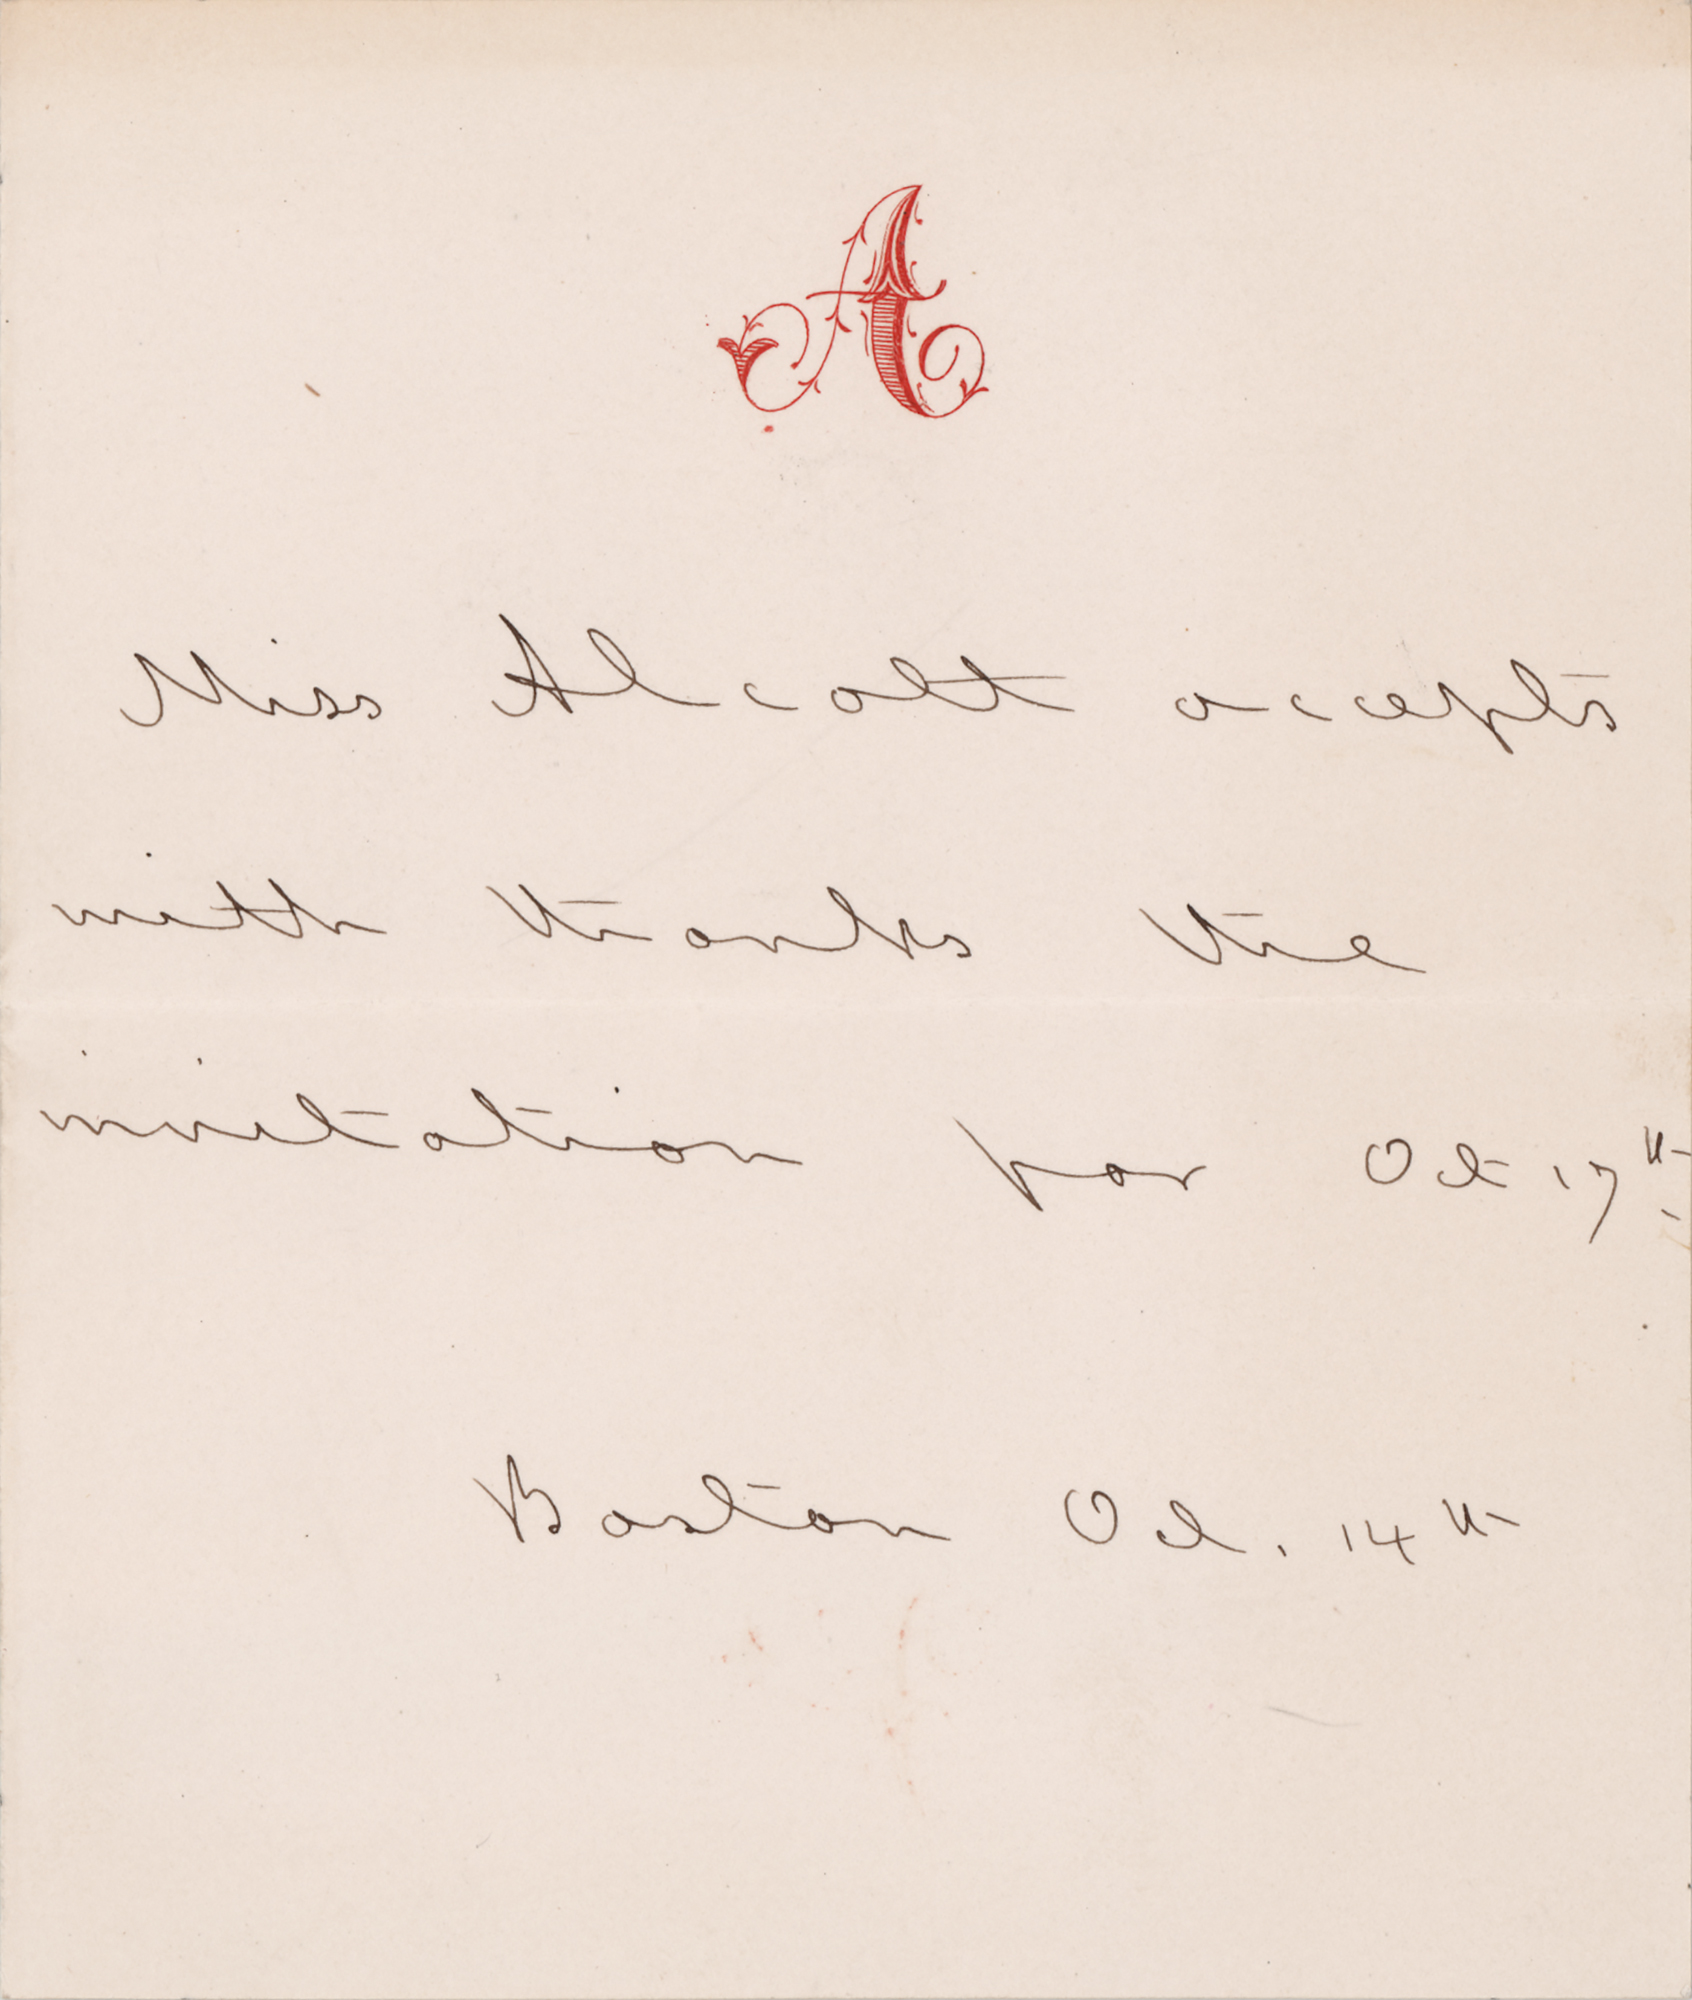 A
Miss Alcott accepts
with thanks the
invitation for Oct 17th.
Boston Oct. 14th